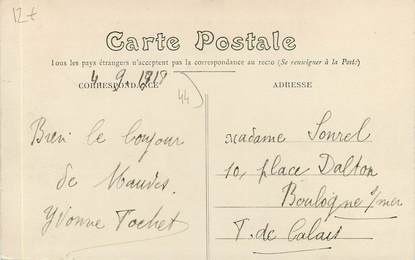 12+
Carte Postale
Tous les pays étrangers n'acceptent pas la correspondance au recto (Se renseigner à la Poste)
4 9 1919
CORRESPONDANCE
ADRESSE
44
Bien le bonjour
de Mauves.
Yvonne Tochet
Madame Sonrel
10, place Dalton
Boulogne s/mer
P. de Calais